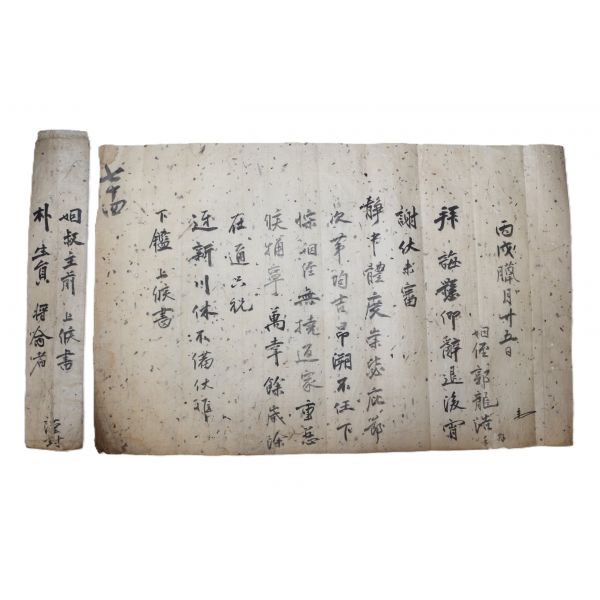 丙戌臘月廿五日
姻侄郭龍浩
拜誨 仰辭退後宵
謝伏未審
靜中體度崇毖庇節
次第均吉昂溯不任下
悰姻侄無撓返家重慈
候猶寧萬幸餘歲除
在邇只祝
迓新川休不備伏惟
下鑑 上候書
七十四
姻叔主前 上候書
朴生員
謹封